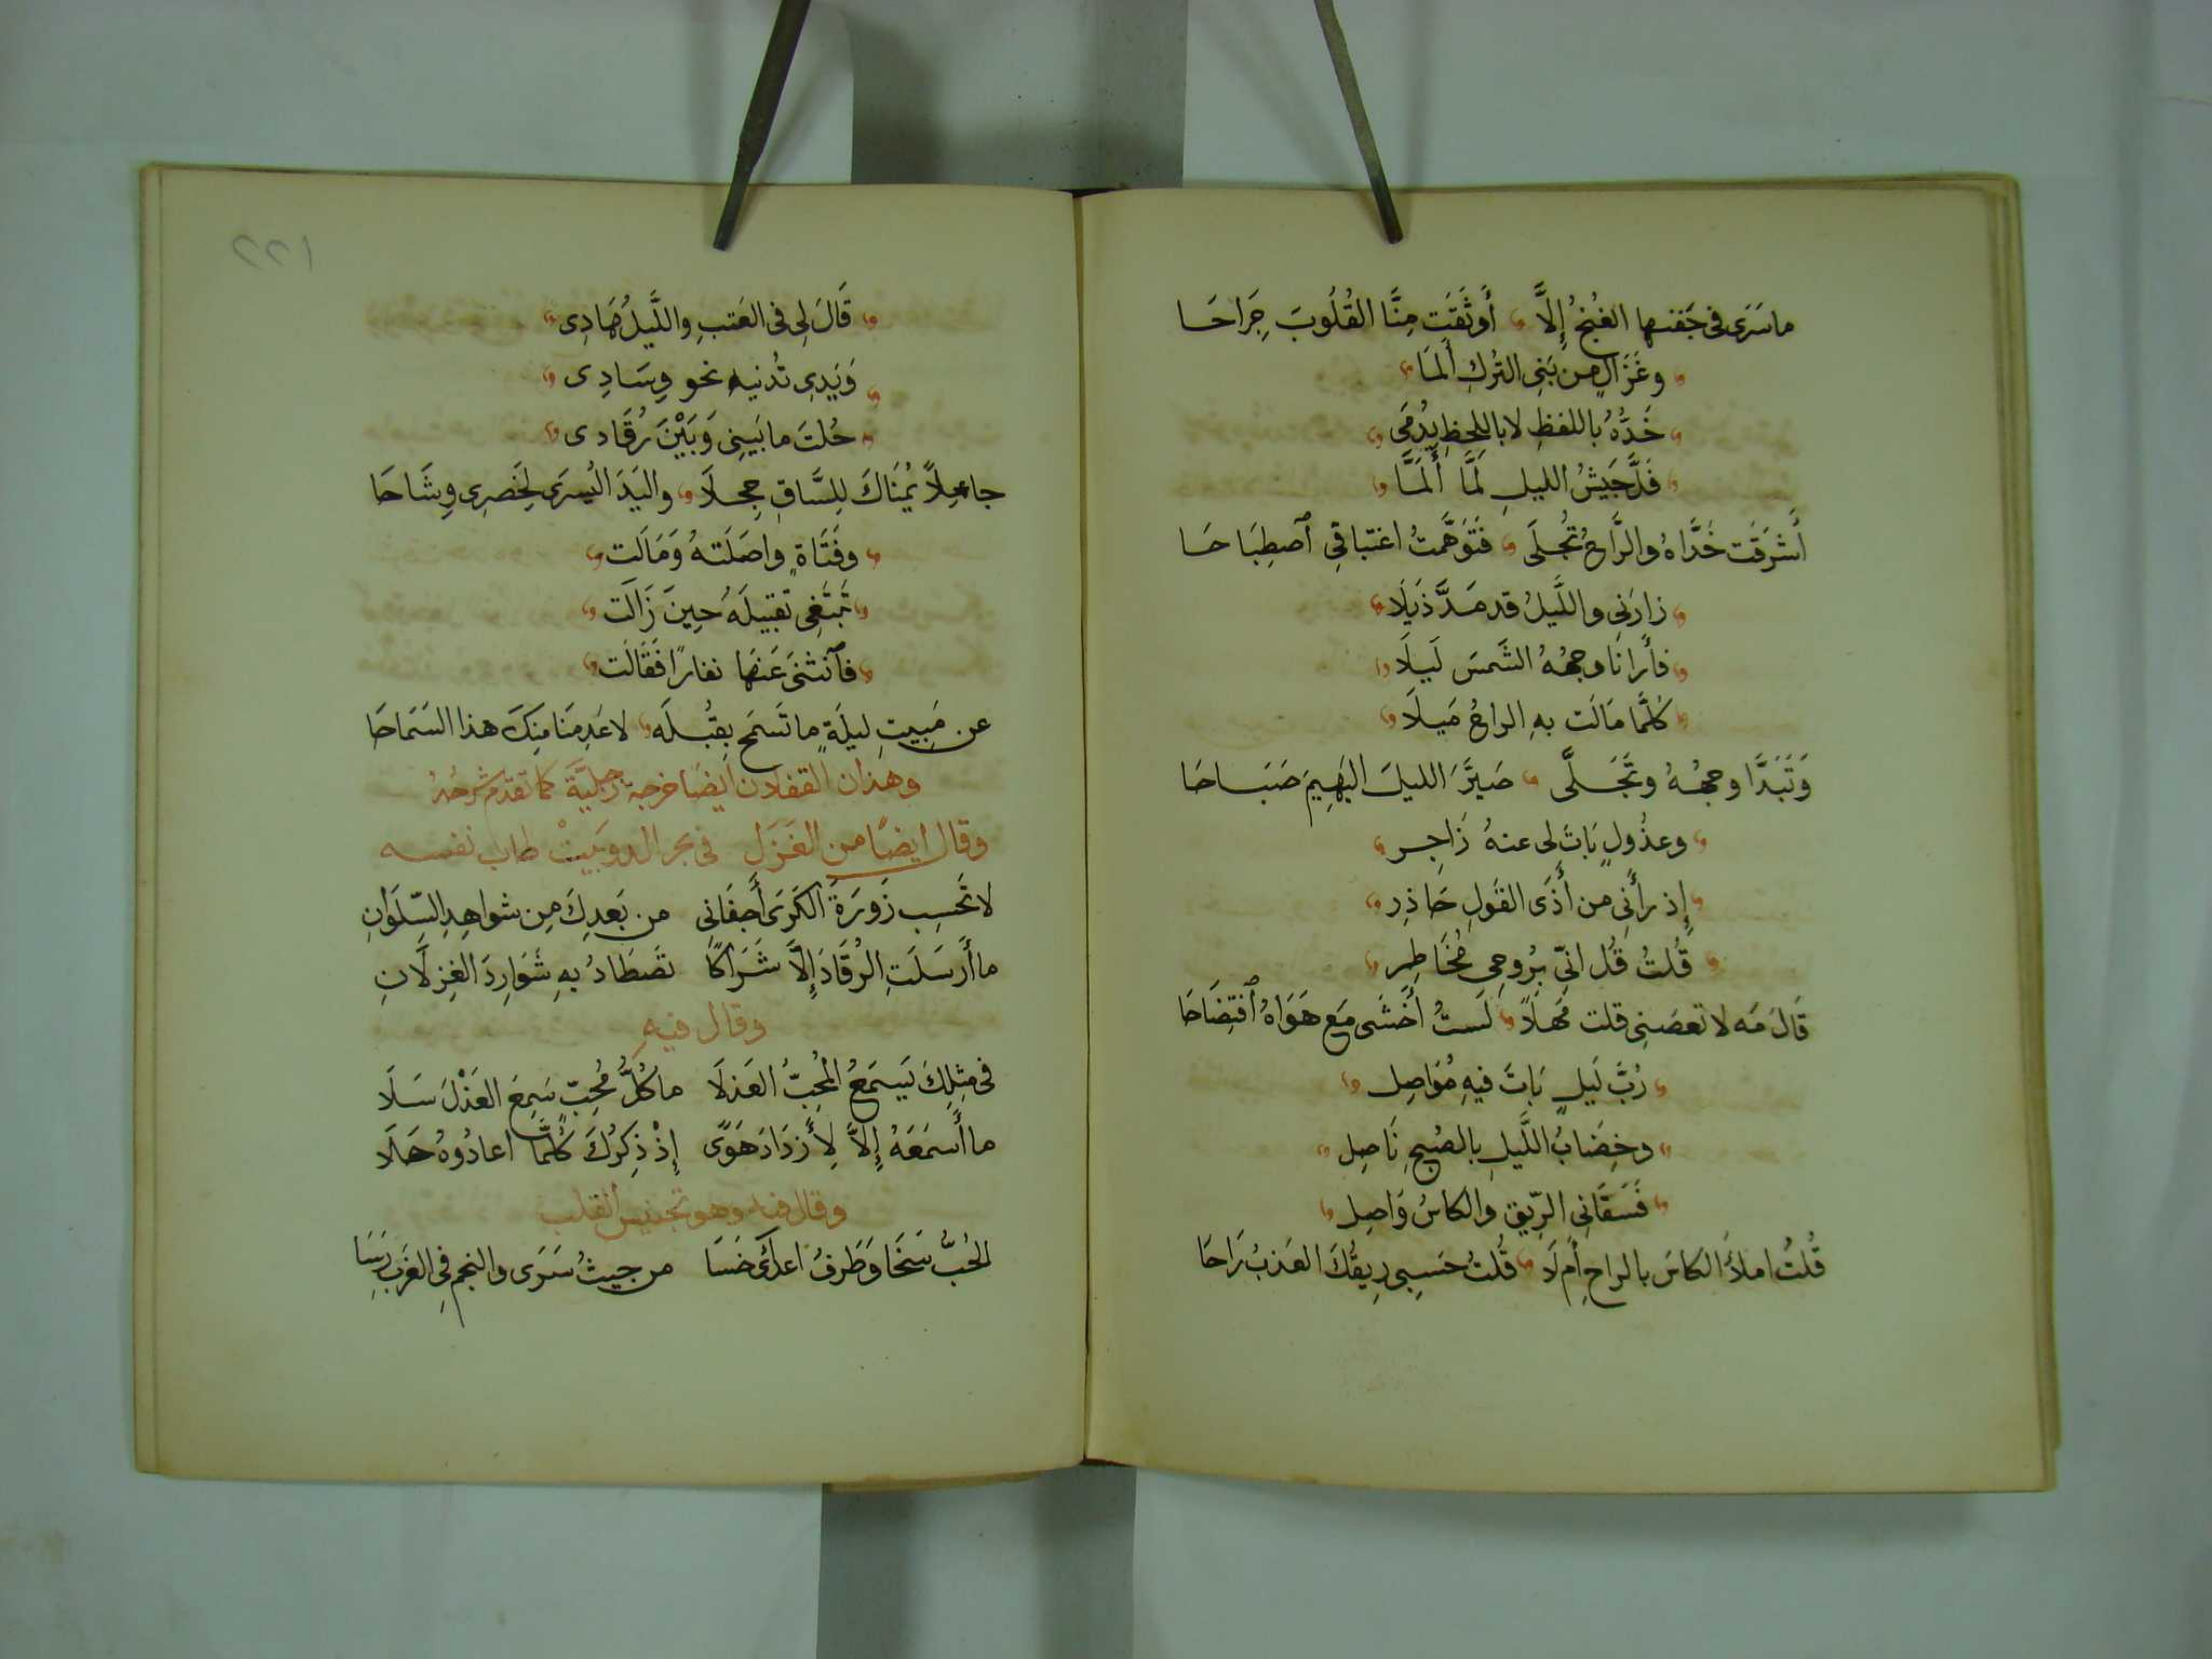 ما سَرَى فى جَفنها الغُنجُ إِلَّا أَوثَقَت مِنَّا القُلُوبَ جِرَاحَا
وغَزَالٍ من بَنِى التُركِ أَلمَا
خَدُّهُ باللفظِ لا باللِحظِ يُدمَى
قَدَّ جَيشُ الليلِ لَمَّا أَلَمَّا
أَشرَقَت خَدَّاهُ والرَّاحُ تُجلَى فَتَوَهَّمتُ اغتباقِي ٱصطِبَاحَا
زارَنِى واللَّيلُ قد مَدَّ ذَيلَا
فأَرانَا وجهُهُ الشَمسَ لَيلَا
كُلَّمَا مَالَت بهِ الراحُ مَيلَا
وَتَبَدَّا وجهُهُ وتَجَلَّى صَيَّرَ الليلَ البَهِيمَ صَبَاحَا
وعذُولٍ بَاتَ لى عنهُ زَاجِر
إِذ رأَنِى من أَذَى القَولِ حَاذِر
قُلتُ قُل انِّى بِرُوحِى مُخَاطِر
قَالَ مَه لا تعصَنِى قلت مَهلًا لَستُ أَخشَى مَع هَوَاهُ ٱفتِضَاحَا
رُبَّ لَيلٍ بَاتَ فيهِ مُوَاصِل
وخِضَابُ اللَّيلِ بالصُبحِ نَاصِل
فَسَقَانِى الرِّيق والكاسُ وَاصِل
قُلتُ املأُ الكاسَ بالراحِ أَم لَا قُلتُ حَسبِى رِيقُكَ العَذبُ رَاحَا
١٢٢
قَالَ لِى فى العَتبِ واللَّيلُ هَادِى
وَيَدِى تُدنيهِ نحو وِسَادِى
حُلتَ ما بَينِى وَبَيْنَ رُقَادى
جاعِلاً يُمنَاكَ لِلسَّاقِ حِجلَا واليَدَ اليُسرَى لِخَصرِى وِشَاحَا
وفَتَاةٍ واصَلَتهُ وَمَالَت
تَبتَغِى تقبيلَهُ حِينَ زَالَت
فٱنثنَى عَنهَا نفارًا فَقَالَت
عن مَبِيتِ ليلَةٍ ما تَسمَح بِقُبلَه لا عَدِمنَا مِنكَ هذا السَمَاحَا
وهذان القفلان ايضًا خرجة زجليَّة كما تقدم شرحُهُ
وقال ايضًا من الغَزَل فى بحر الدوبَيتْ طاب نفسه
لا تَحسِب زَورَةَ الكَرَى أَجفَانى من بَعدِكَ مِن شواهِدِ السِّلوَانِ
ما أَرسَلَتِ الرُقَادَ إِلَّا شَرَاكًا تَصطَادُ بهِ شَوَارِدَ الغِزلَانِ
وقال فيهِ
فى مِثلِكَ يَسمَعُ المُحِبُّ العَذلَا ما كُلُّ مُحِبٍّ سَمِعَ العَذْلَ سَلَا
ما أَسمَعَهُ إِلاَّ لِأَزدَادَ هَوًى إِذْ ذِكرُكَ كُلَّمَا اعادُوهُ حَلَا
وقال فيه وهو تجنيس القلب
الحُبُّ سَخَا وَطَرفُ اعدآئى خَسَا من حيثُ سَرَى والنجم فِى الغَرب رَسَا